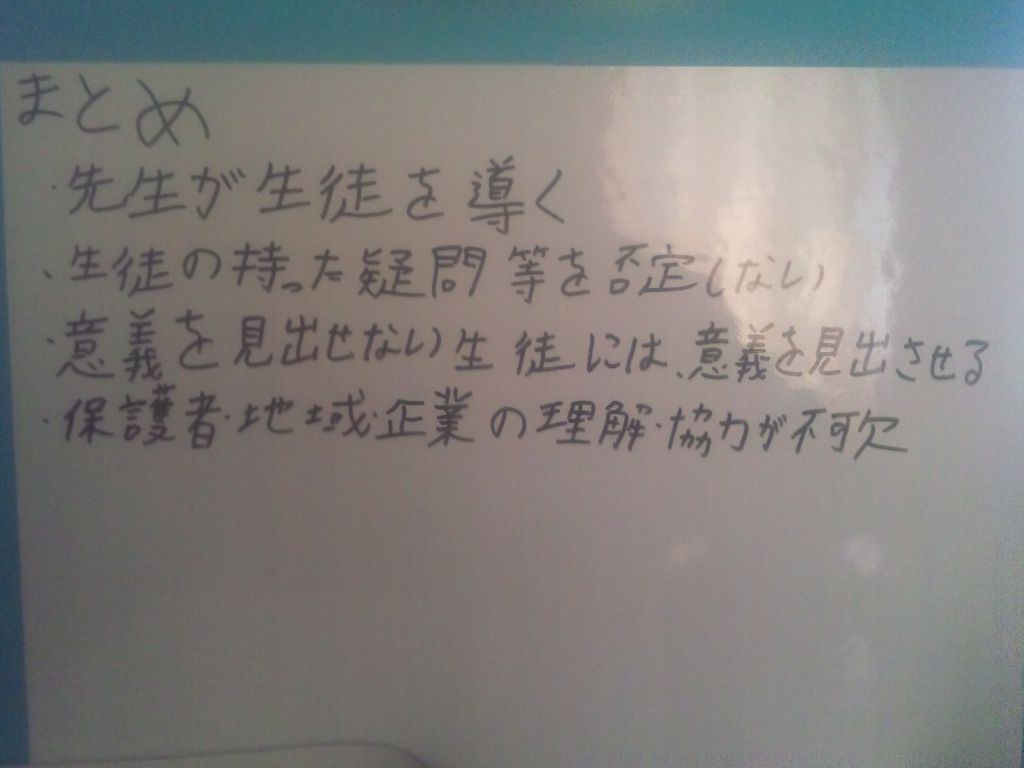 まとめ
・先生が生徒を導く
・生徒の持った疑問等を否定しない
・意義を見出せない生徒には、意義を見出させる
・保護者・地域・企業の理解・協力が不可欠